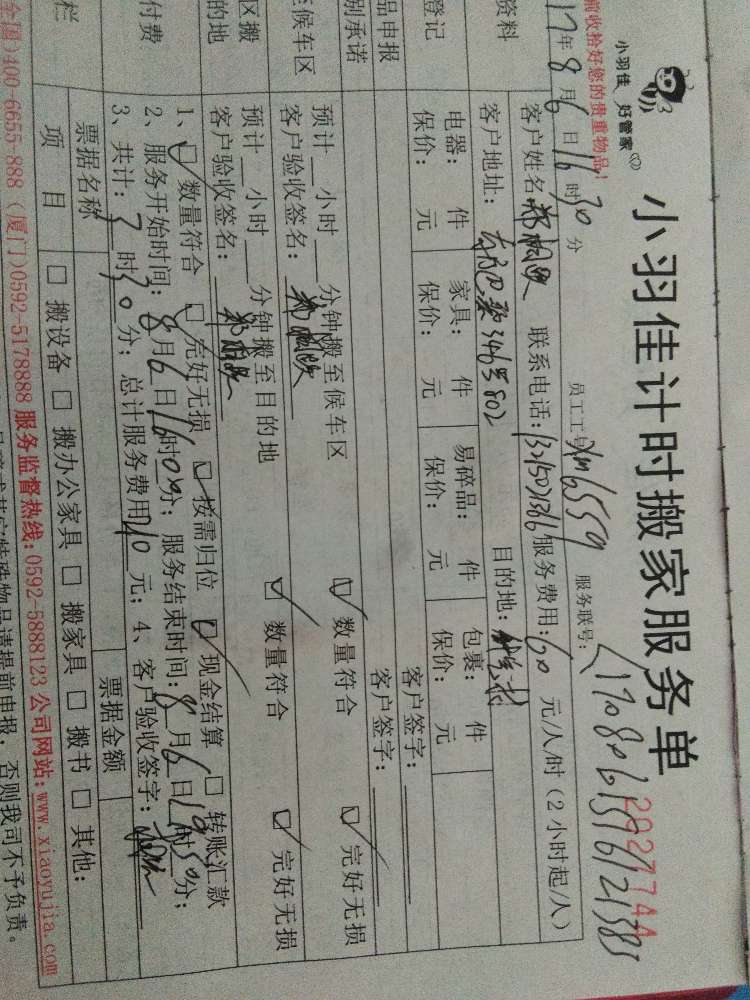 小羽佳 好管家
小羽佳计时搬家服务单
202774A
前收拾好您的贵重物品!
17年8月6日16时30分 员工工号 Xm6559 服务联号:
资料 客户姓名 联系电话: 服务费用:60 元/人/时(2小时起/人)
客户地址: 目的地:
登记 电器: 件 家具: 件 易碎品: 件 包裹: 件
保价: 元 保价: 元 保价: 元 保价: 元
品申报 客户签字:
别承诺 客户签字:
至候车区 预计 小时 分钟搬至候车区 数量符合 完好无损
客户验收签名:
区搬 预计 小时 分钟搬至目的地 数量符合 完好无损
的地 客户验收签名:
付费 1、 数量符合 完好无损 按需归位 现金结算 转账汇款
2、服务开始时间:8月6日16时00分; 服务结束时间:8月6日19时50分;
3、共计:3时50分; 总计服务费用 元; 4、客户验收签字:
栏 票据名称 票据金额
项 目 搬设备 搬办公家具 搬家具 搬书 其他:
全国)400-6655-888 (厦门)0592-5178888 服务监督热线:0592-5888123 公司网站:www.xiaoyujia.com
特殊物品请提前申报,否则我司不予负责。